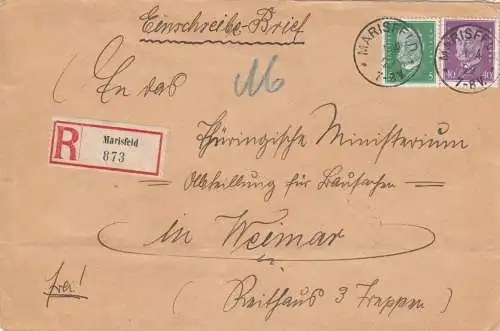 Einschreibe-Brief
MARISFELD
7-8V.
5
MARISFELD
7-8V.
40 40
M
An das
R Marisfeld
873
Thüringische Ministerium
Abteilung für Bausachen
in Weimar
frei!
(Reithaus 3 Treppen)